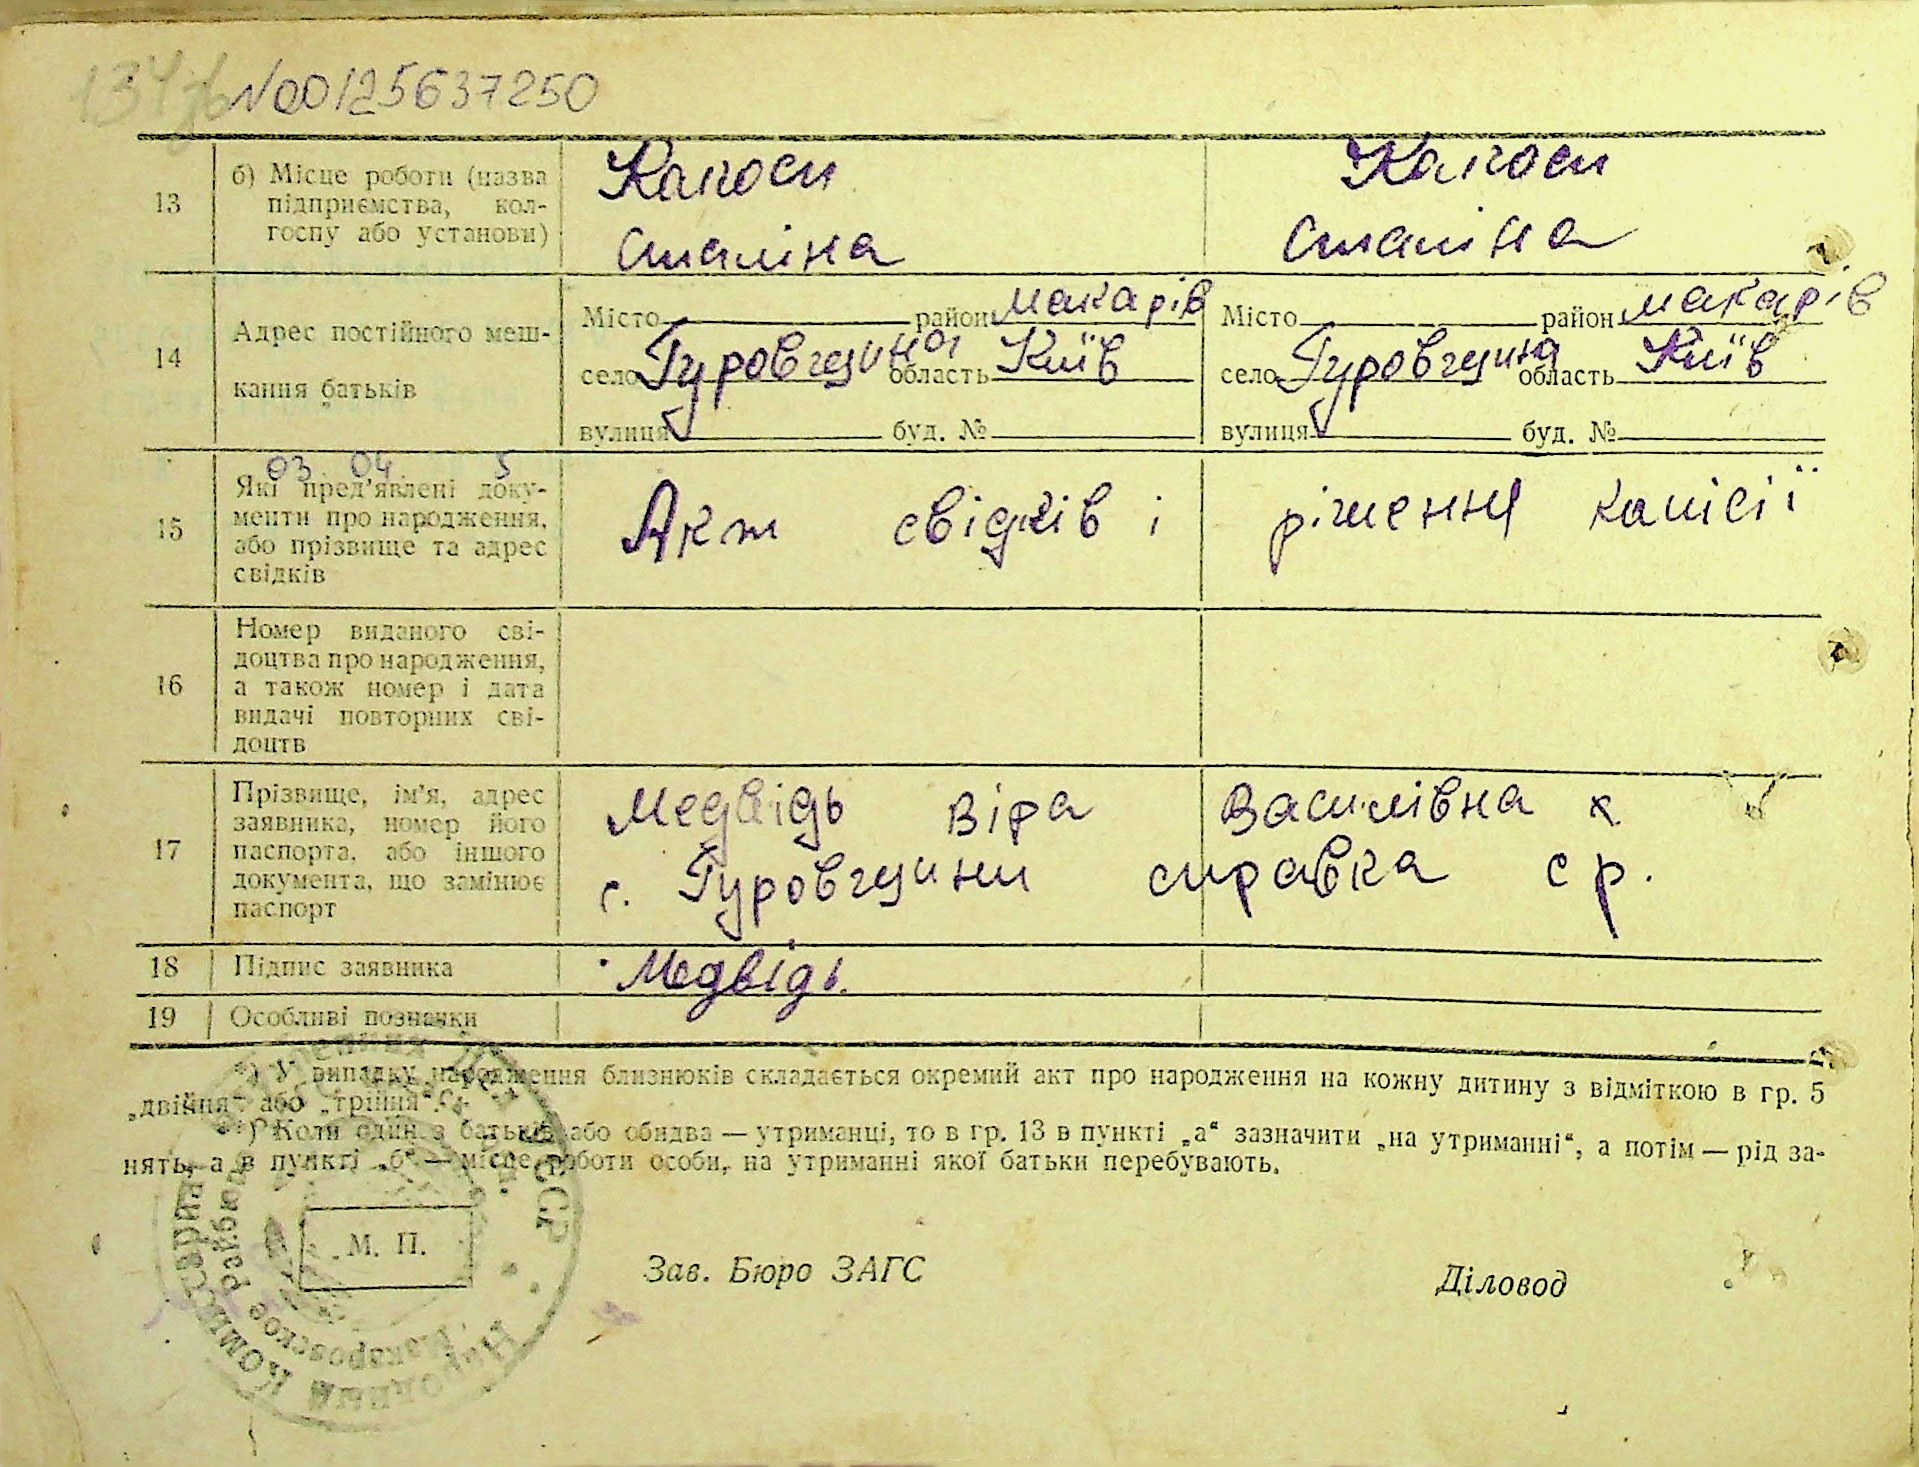 134зв №00125637250
13
б) Місце роботи (назва
підприємства, кол-
госпу або установи)
Колгосп
Сталіна
Колгосп
Сталіна
14
Адрес постійного меш-
кання батьків
Місто район Макарів
село Гуровщина область Київ
вулиця буд. №
Місто район Макарів
село Гуровщина область Київ
вулиця буд. №
03 04 5
15
Які пред'явлені доку-
менти про народження,
або прізвище та адрес
свідків
Акт свідків і рішення комісії
16
Номер виданого сві-
доцтва про народження,
а також номер і дата
видачі повторних сві-
доцтв
17
Прізвище, ім'я, адрес
заявника, номер його
паспорта, або іншого
документа, що замінює
паспорт
Медвідь Віра Василівна
с. Гуровщини справка с р.
18
Підпис заявника
Медвідь
19
Особливі позначки
*) У випадку народження близнюків складається окремий акт про народження на кожну дитину з відміткою в гр. 5
„двійня“ або „трійня“.
**) Коли один з батьків або обидва — утриманці, то в гр. 13 в пункті „а“ зазначити „на утриманні“, а потім — рід за-
нять, а в пункті „б“ — місце роботи особи, на утриманні якої батьки перебувають.
М. П.
Зав. Бюро ЗАГС
Діловод
Народный Комиссариат
Макаровское райбюро